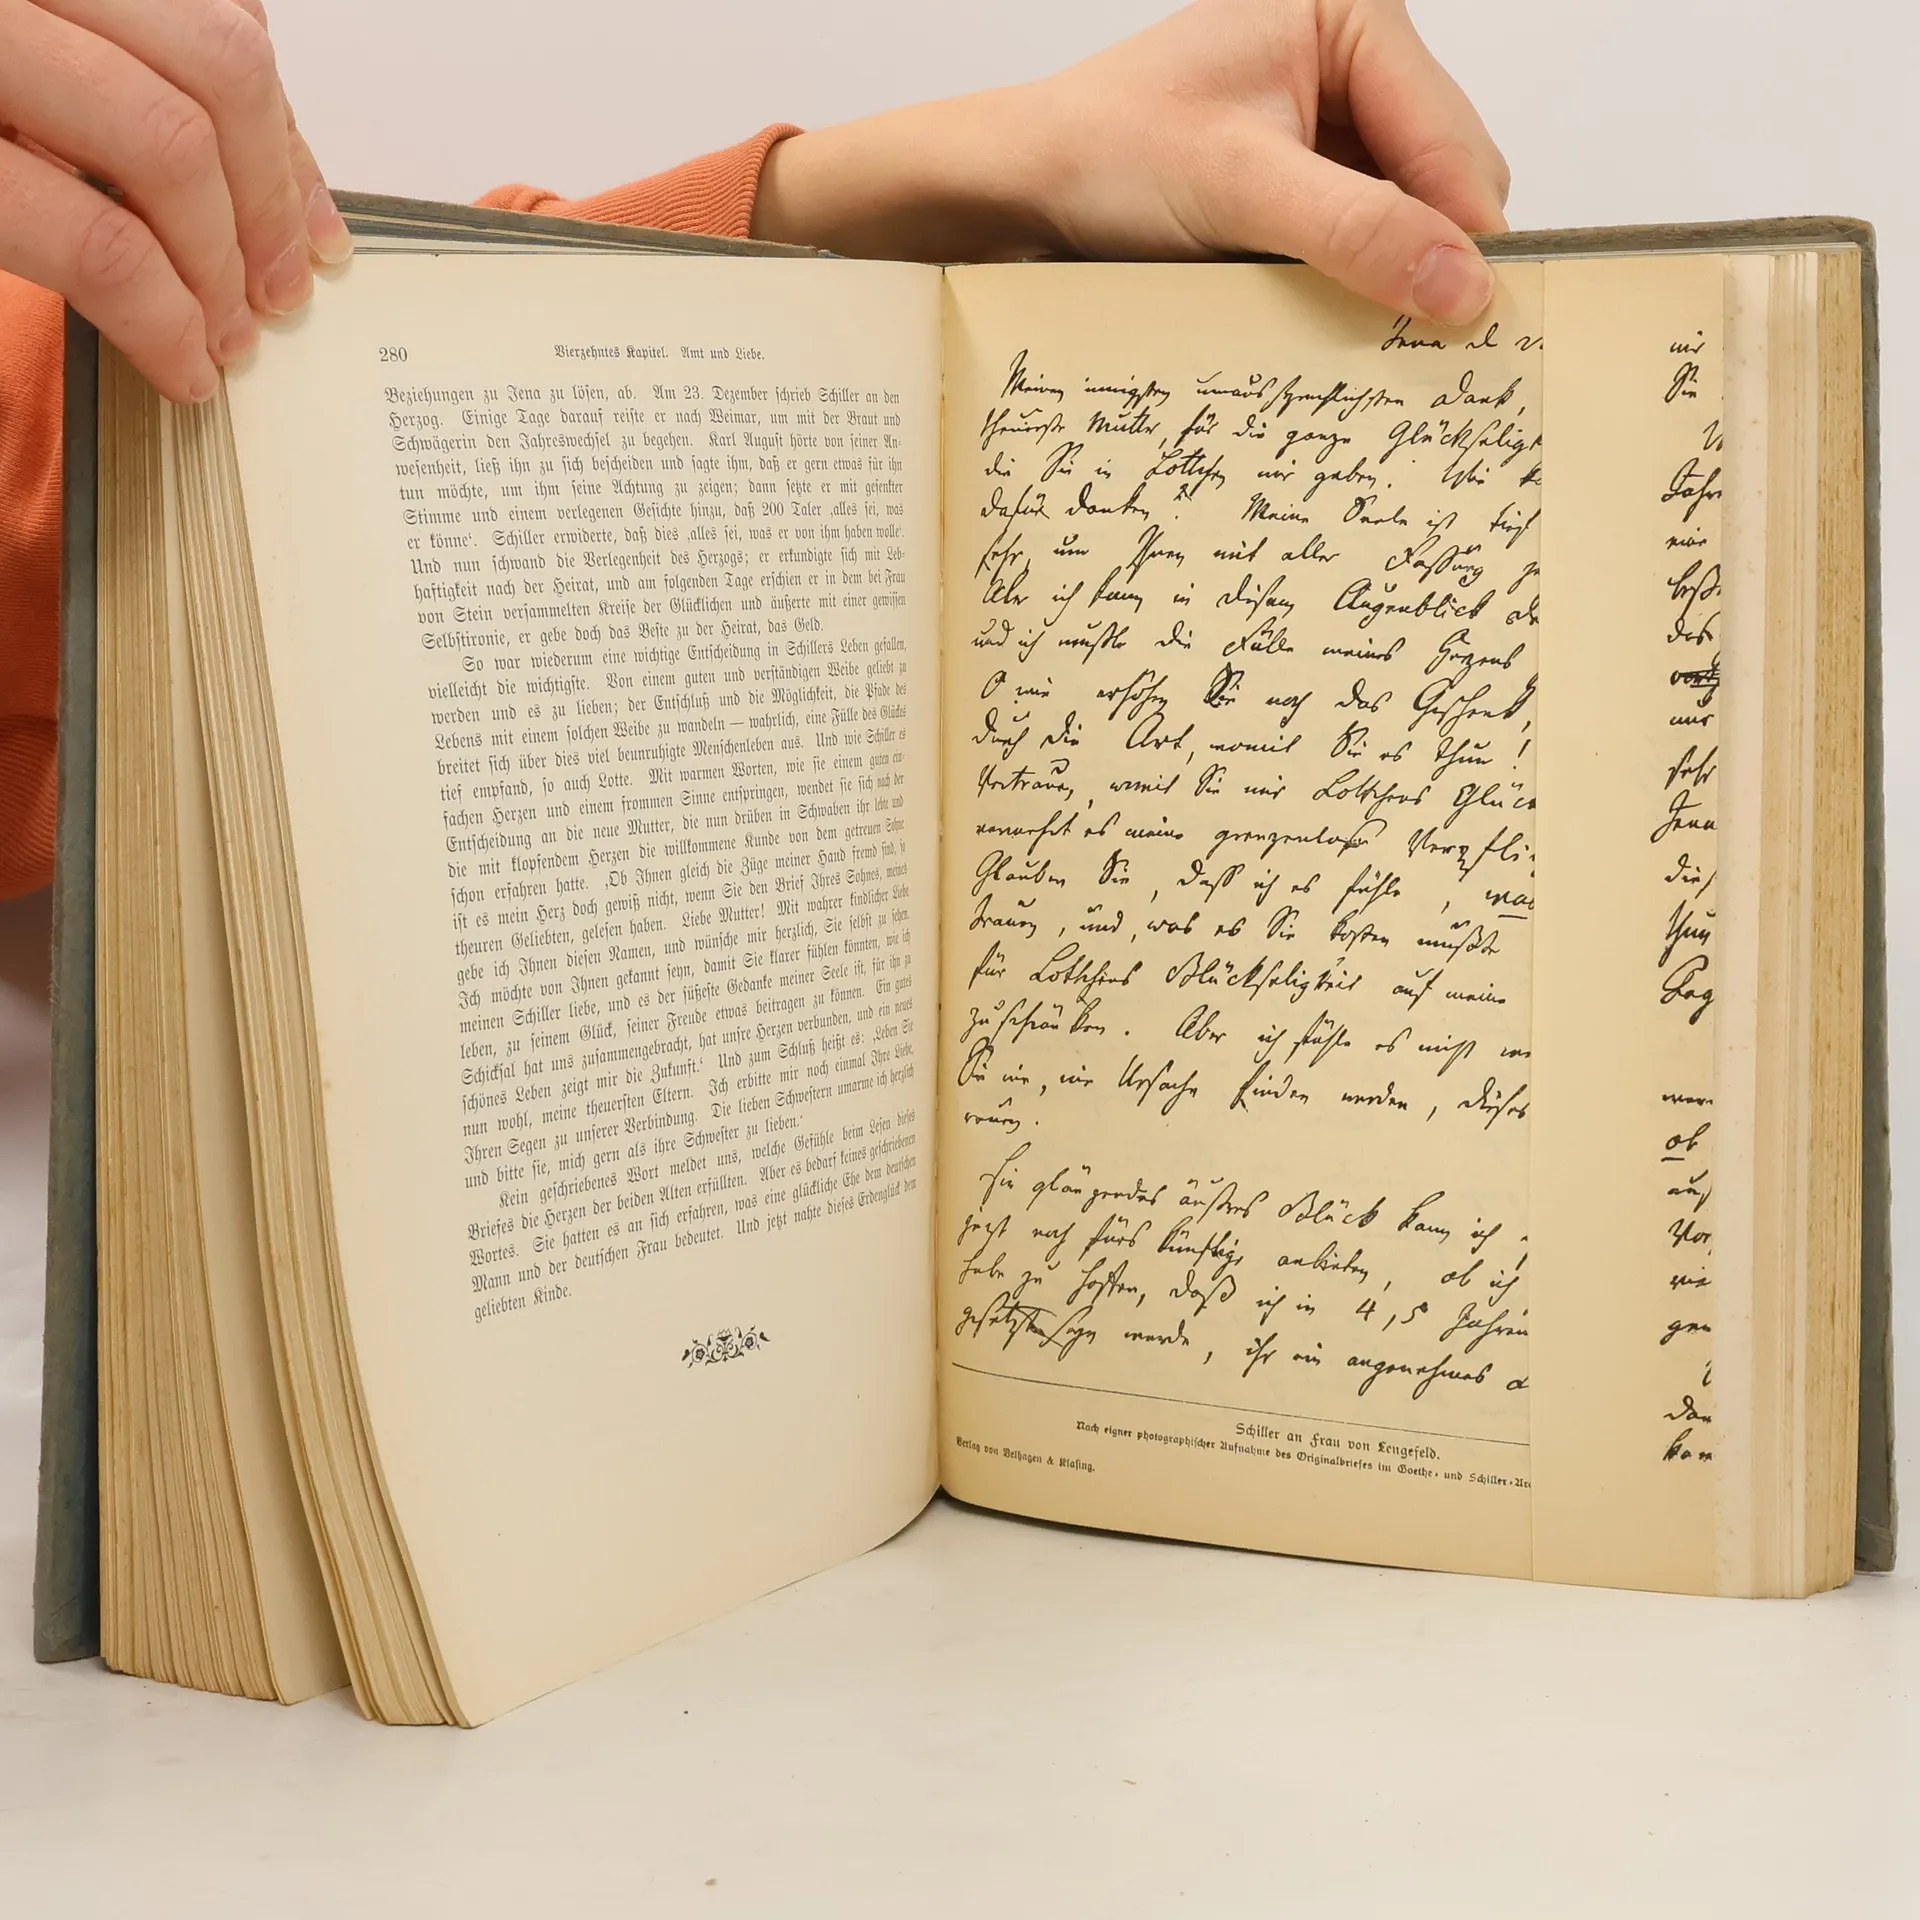 280
Vierzehntes Kapitel. Amt und Liebe.
Beziehungen zu Jena zu lösen, ab. Am 23. Dezember schrieb Schiller an den
Herzog. Einige Tage darauf reiste er nach Weimar, um mit der Braut und
Schwägerin den Jahreswechsel zu begehen. Karl August hörte von seiner An-
wesenheit, ließ ihn zu sich bescheiden und sagte ihm, daß er gern etwas für ihn
tun möchte, um ihm seine Achtung zu zeigen; dann setzte er mit gesenkter
Stimme und einem verlegenen Gesichte hinzu, daß 200 Taler ‚alles sei, was
er könne‘. Schiller erwiderte, daß dies ‚alles sei, was er von ihm haben wolle‘.
Und nun schwand die Verlegenheit des Herzogs; er erkundigte sich mit Leb-
haftigkeit nach der Heirat, und am folgenden Tage erschien er in dem bei Frau
von Stein versammelten Kreise der Glücklichen und äußerte mit einer gewissen
Selbstironie, er gebe doch das Beste zu der Heirat, das Geld.
So war wiederum eine wichtige Entscheidung in Schillers Leben gefallen,
vielleicht die wichtigste. Von einem guten und verständigen Weibe geliebt zu
werden und es zu lieben; der Entschluß und die Möglichkeit, die Pfade des
Lebens mit einem solchen Weibe zu wandeln — wahrlich, eine Fülle des Glückes
breitet sich über dies viel beunruhigte Menschenleben aus. Und wie Schiller es
tief empfand, so auch Lotte. Mit warmen Worten, wie sie einem guten ein-
fachen Herzen und einem frommen Sinne entspringen, wendet sie sich nach der
Entscheidung an die neue Mutter, die nun drüben in Schwaben ihr lebte und
die mit klopfendem Herzen die willkommene Kunde von dem getreuen Sohne
schon erfahren hatte. ‚Ob Ihnen gleich die Züge meiner Hand fremd sind, so
ist es mein Herz doch gewiß nicht, wenn Sie den Brief Ihres Sohnes, meines
theuren Geliebten, gelesen haben. Liebe Mutter! Mit wahrer kindlicher Liebe
gebe ich Ihnen diesen Namen, und wünsche mir herzlich, Sie selbst zu sehen.
Ich möchte von Ihnen gekannt seyn, damit Sie klarer fühlen könnten, wie ich
meinen Schiller liebe, und es der süßeste Gedanke meiner Seele ist, für ihn zu
leben, zu seinem Glück, seiner Freude etwas beitragen zu können. Ein gutes
Schicksal hat uns zusammengebracht, hat unsre Herzen verbunden, und ein neues
schönes Leben zeigt mir die Zukunft.‘ Und zum Schluß heißt es: ‚Leben Sie
nun wohl, meine theuersten Eltern. Ich erbitte mir noch einmal Ihre Liebe,
Ihren Segen zu unserer Verbindung. Die lieben Schwestern umarme ich herzlich
und bitte sie, mich gern als ihre Schwester zu lieben.‘
Kein geschriebenes Wort meldet uns, welche Gefühle beim Lesen dieses
Briefes die Herzen der beiden Alten erfüllten. Aber es bedarf keines geschriebenen
Wortes. Sie hatten es an sich erfahren, was eine glückliche Ehe dem deutschen
Mann und der deutschen Frau bedeutet. Und jetzt nahte dieses Erdenglück dem
geliebten Kinde.
Jena d
Meinen innigsten unaussprechlichsten Dank,
theuerste Mutter, für die ganze Glückselig
die Sie in Lottchen mir geben. Wie
dafür danken? Meine Seele ist tief
sehr, um Ihnen mit aller Fassung
Aber ich kann in diesem Augenblick
und ich mußte die Fülle meines Herzens
O wie erhöhen Sie noch das Geschenk,
durch die Art, womit Sie es thun!
Vertrauen, womit Sie mir Lottchens Glück
vermehrt es meine grenzenlose Verpfli
Glauben Sie, dass ich es fühle,
trauen, und, was es Sie kosten müßte
für Lottchens Glückseligkeit auf meine
zuschränken. Aber ich fühle es nicht
Sie nie, nie Ursache finden werden, dieses
reuen.
Ein glänzendes äußres Glück kann ich
jezt noch fürs künftige anbieten, ob ich
habe zu hoffen, daß ich in 4, 5 Jahren
gesetzt seyn werde, ihr ein angenehmes
Schiller an Frau von Lengefeld.
Nach eigner photographischer Aufnahme des Originalbriefes im Goethe- und Schiller-Arc
Verlag von Velhagen & Klasing.
mir
Sie
Jahr
eine
das
aus
sehr
Jena
thun
ob
Vor
wie